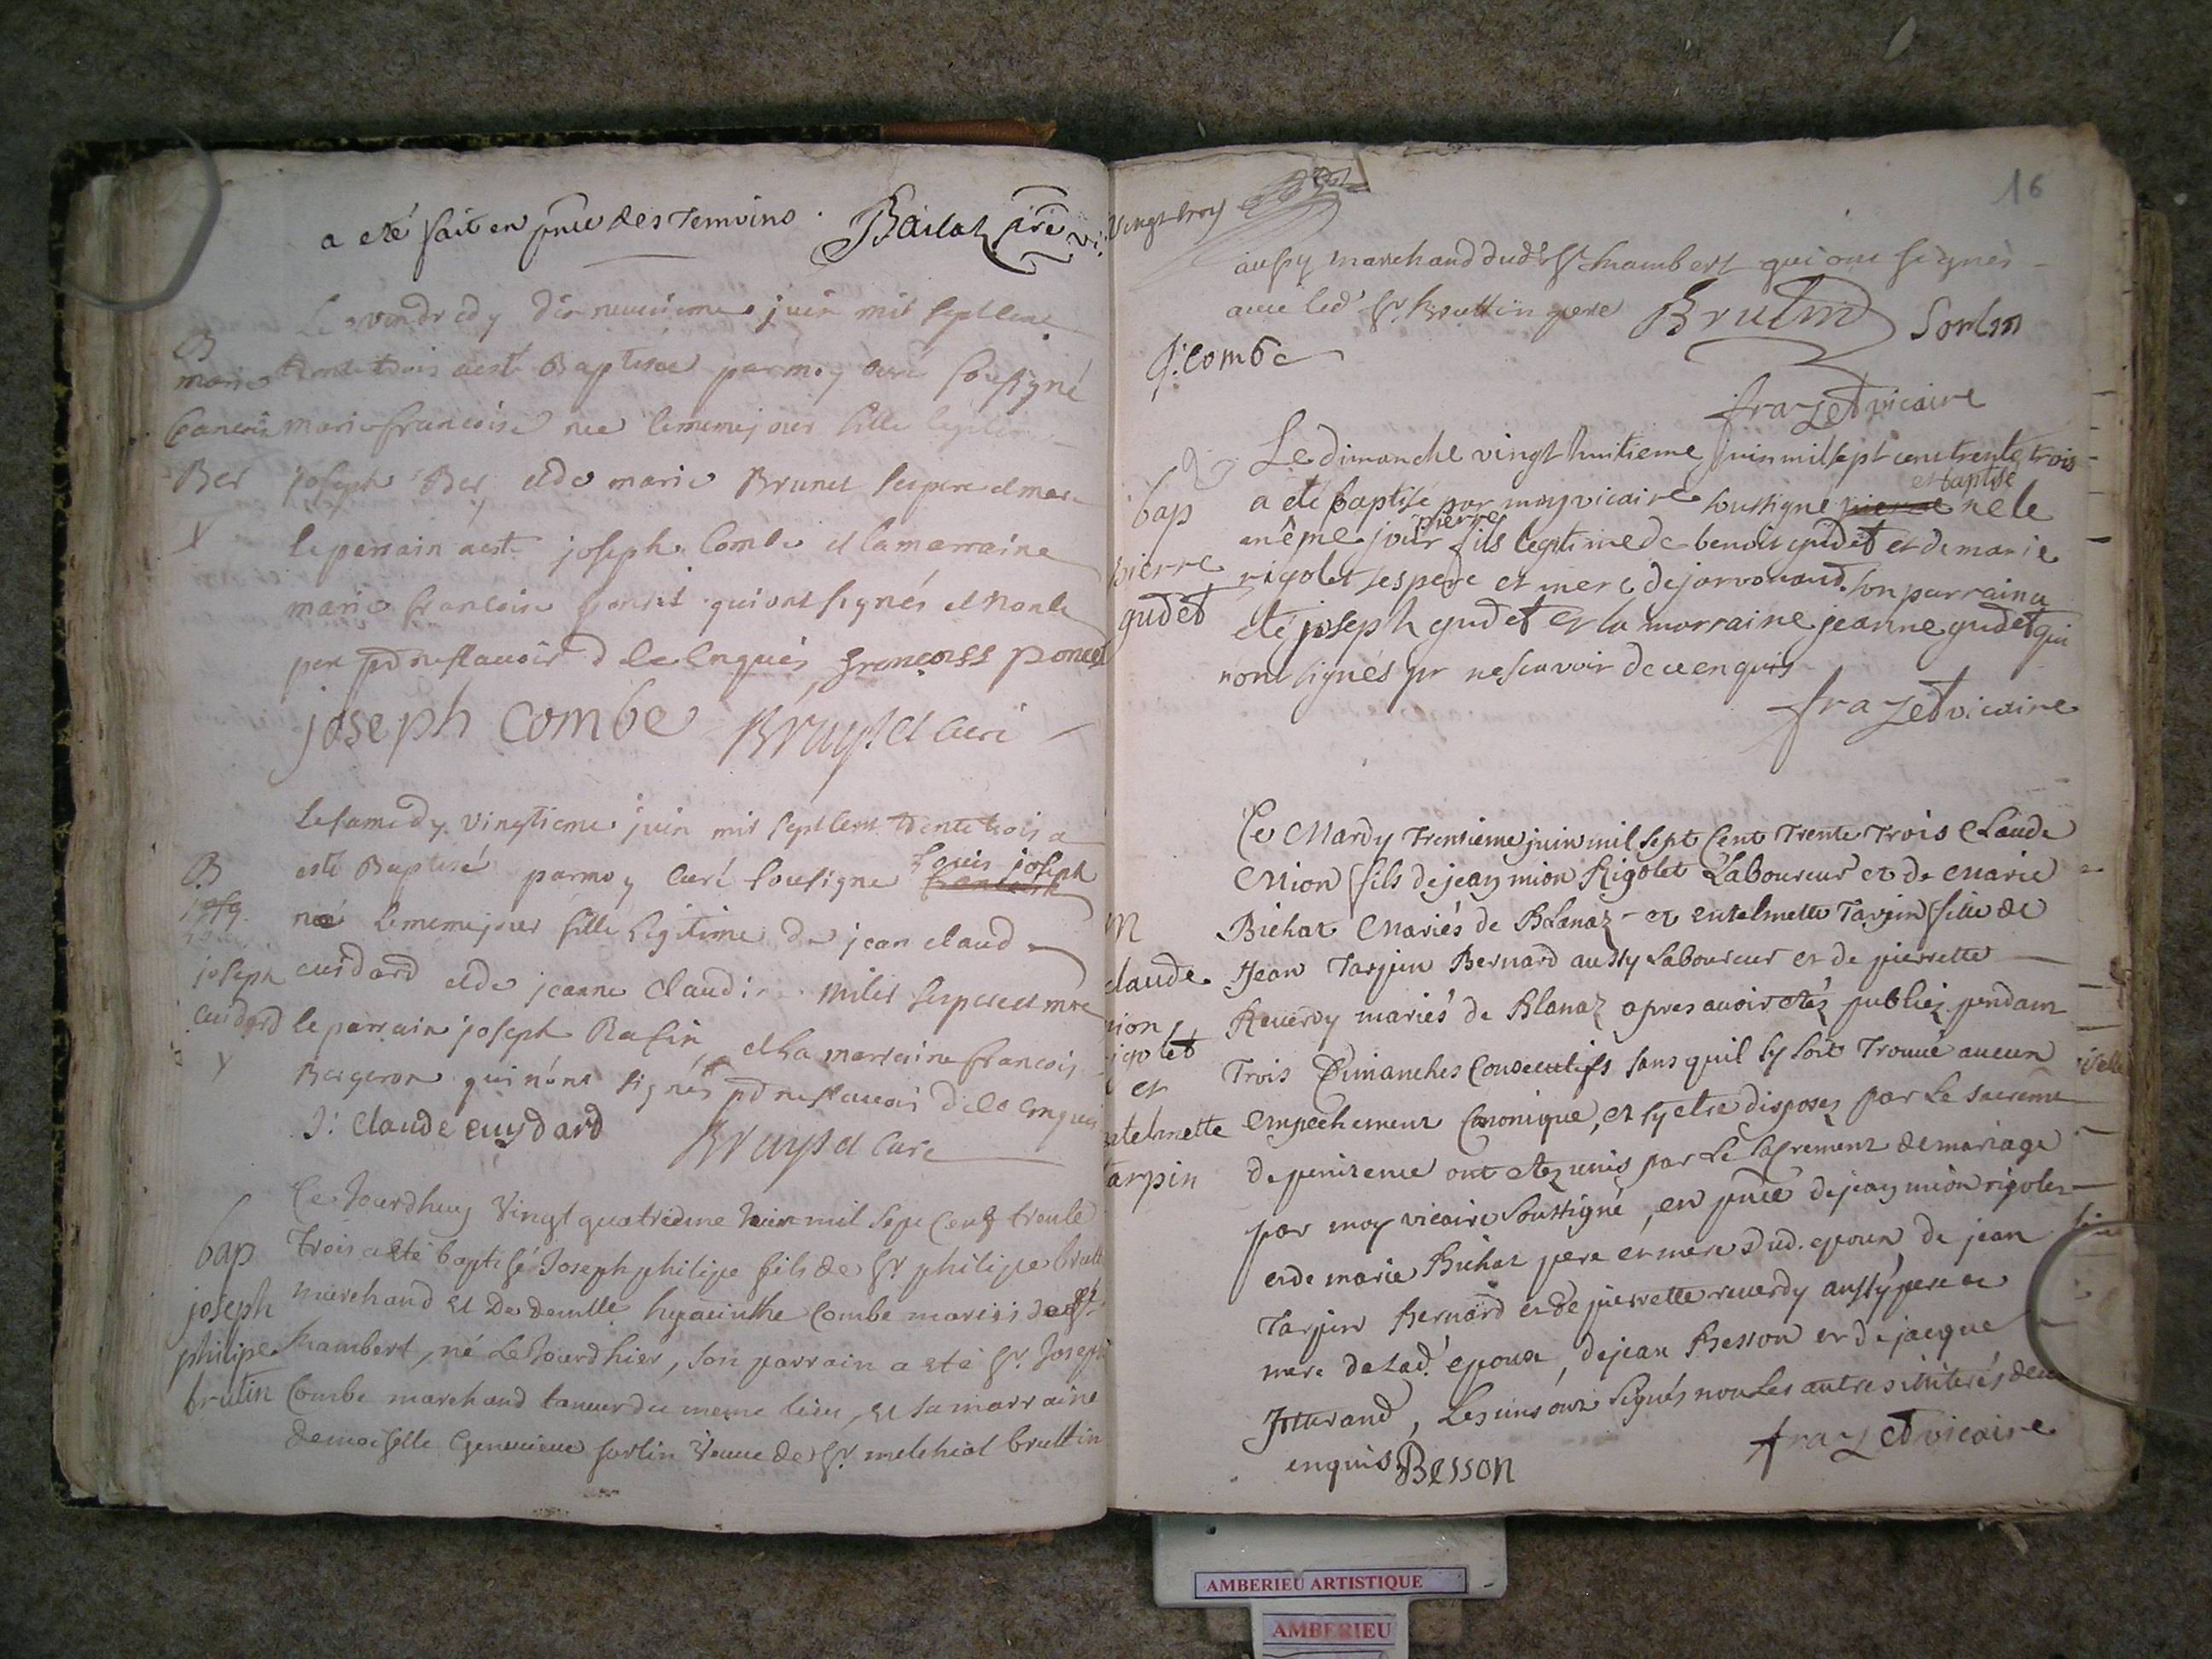 a eté fait en pnce des Temoins. Bailat pre vi.
Le vendredy dix neuvieme juin mil sept cent
trente trois a esté Baptisee par moy curé soussigné
marie francoise née le meme jour fille legitime
joseph Ber et de marie Brunet ses pere et mere
le parrain a esté joseph Combe et la marraine
marie francoise poncet qui ont signés et non le
pere pr ne scavoir de ce enquis françoiss poncet
joseph combe Bruyset curé
B
marie
francoise
Ber
Le samedy vingtieme juin mil sept cent trente trois a
esté Baptisé par moy curé sousigné louis joseph
né le meme jour fille legitime de jean claude
cuidard et de jeanne claudine milet ses pere et mre
le parrain joseph Rafin et la marraine francoise
Bergeron qui n'ont signés pr ne scavoir de ce enquis
J: claude cuydard Bruyset curé
B
joseph
cuidard
Ce Jourdhuy vingt quatrieme Juin mil sept cent trente
trois a eté baptisé Joseph philipe fils de Sr philipe brutt
marchand et de demlle hyacinthe Combe mariés de St
Rambert, né le Jourdhier, son parrain a eté Sr. Joseph
Combe marchand taneur du meme lieu, et sa marraine
demoiselle Genevieve sorlin veuve de Sr. melchiol bruttin
bap
joseph
philipe
brutin
vingt troy
16
aussy marchand dudt St Rambert qui ont signés
avec led. Sr. Bruttin pere Brutin Sorlin
J. combe
frazet vicaire
Le dimanche vingt huitieme Juin mil sept cent trente trois
a eté baptisé par moy vicaire soussigné pierre et baptisé né le
même jour pierre fils legitime de benoit gudet et de marie
rigolet ses pere et mere de jarvonaud. son parrain a
eté joseph gudet et la marraine jeanne gudet qui
n'ont signés pr ne scavoir de ce enquis
frazet vicaire
bap
pierre
gudet
Ce Mardy Trentieme juin mil sept Cent Trente Trois Claude
Mion fils de jean mion Rigolet Laboureur et de Marie
Bichat Mariés de Blanaz et entelmette Tarpin fille de
Jean Tarpin Bernard aussy Laboureur et de pierrette
Reverdy mariés de Blanaz apres avoir etéz publiéz pendant
Trois Dimanches Consecutifs sans quil sy soit Trouvé aucun
empechement Canonique, et sy etre disposez par le sacreme
de penitence ont etez unis par le sacrement de mariage
par moy vicaire soussigné, en pnce de jean mion rigolet
et de marie Bichat pere et mere dud. epoux, de jean
Tarpin Bernard et de pierrette reverdy aussy pere et
mere de lad. epouse, de jean Besson et de jacque
Les uns ont signés non les autres de ce
enquis. Besson frazet vicaire
M
claude
mion
rigolet
et
entelmette
tarpin
AMBERIEU ARTISTIQUE
AMBERIEU